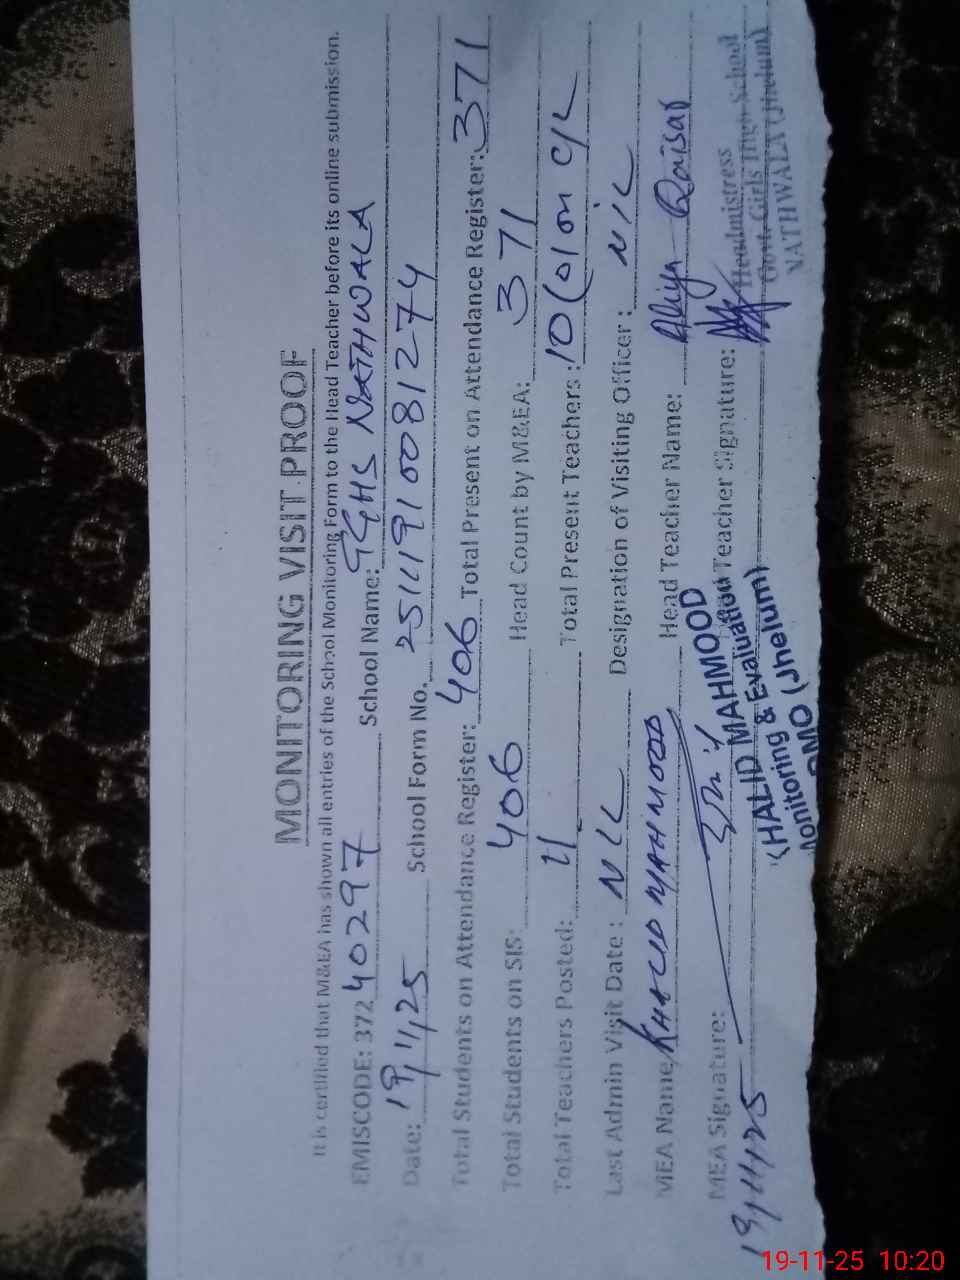 MONITORING VISIT PROOF
It is certified that M&EA has shown all entries of the School Monitoring Form to the Head Teacher before its online submission.
EMISCODE: 372 40297 School Name: GGHS NATHWALA
Date: 19/11/25 School Form No. 25111910081274
Total Students on Attendance Register: 406 Total Present on Attendance Register: 371
Total Students on SIS: 406 Head Count by M&EA: 371
Total Teachers Posted: 11 Total Present Teachers: 10 (01 on C/L
Last Admin Visit Date: NIL Designation of Visiting Officer: NIL
MEA Name: KHALID MAHMOOD Head Teacher Name: Aliya Qaisar
MEA Signature: Head Teacher Signature:
19/11/25
KHALID MAHMOOD
Monitoring & Evaluation
DMO (Jhelum)
Headmistress
Govt. Girls High School
NATHWALA (Jhelum)
19-11-25 10:20